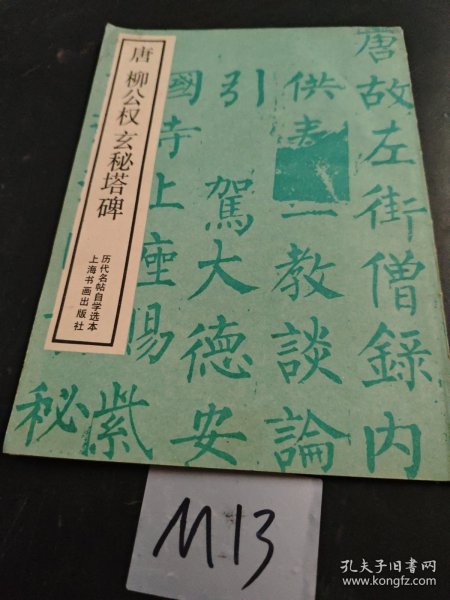 唐 柳公权 玄秘塔碑
历代名帖自学选本
上海书画出版社
唐故左街僧録内
供奉
一教談論
引
駕大德安
國寺上座賜
紫
秘
M13
孔夫子旧书网
www.kongfz.com